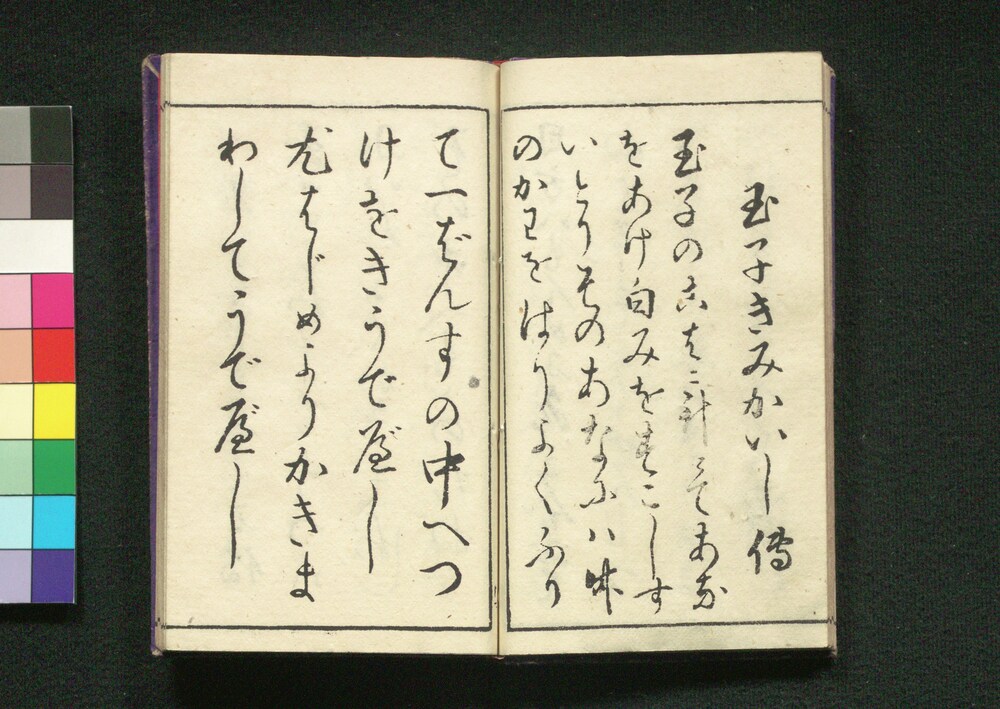 玉子きみかいし傳
玉子の 針にてあな
をあけ白みをすこしす
いとりそのあなにハ
のかわをはりよくふり
て一ばんすの中へつ
けをきうでべし
尤はじめよりかきま
わしてうでべし